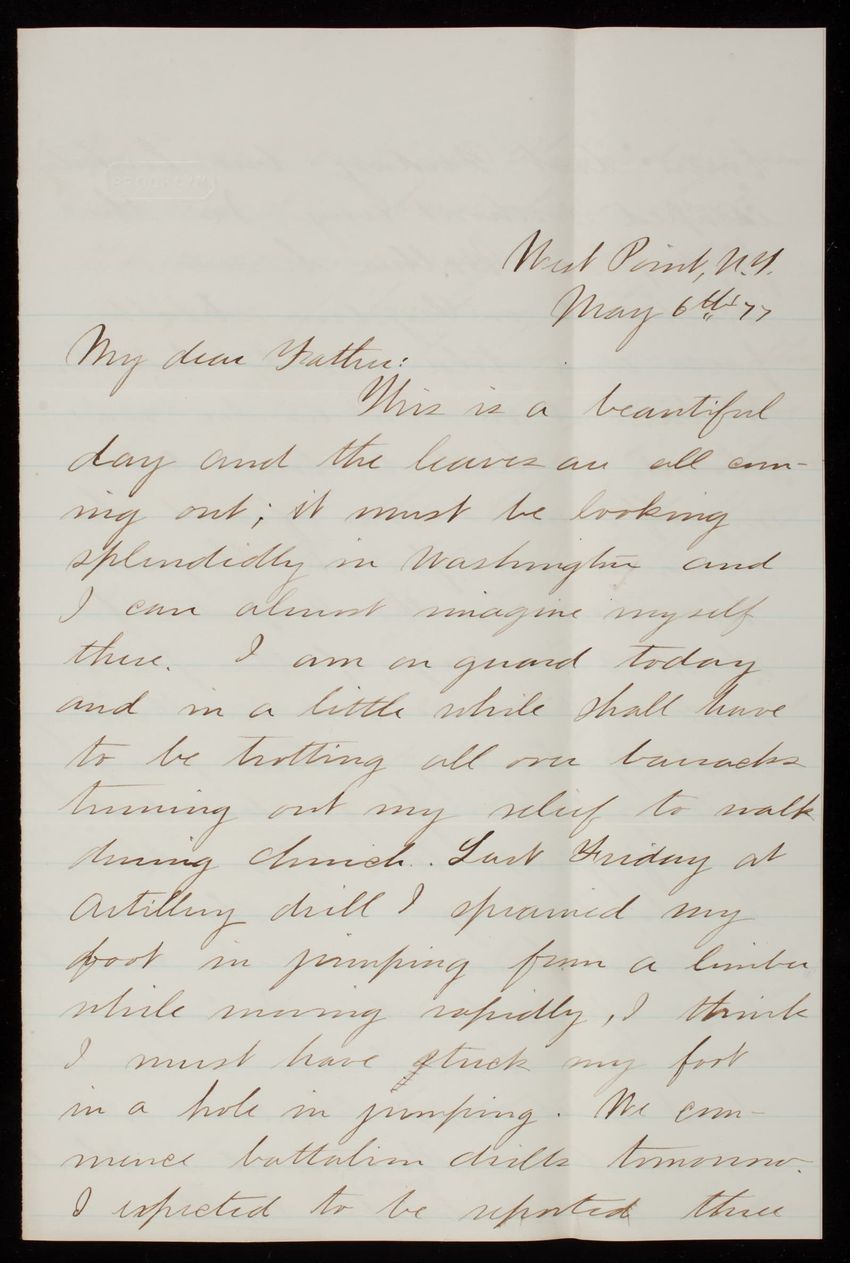 BROOKLYN
West Point, N.Y.
May 6th '77
My dear Father:
This is a beautiful
day and the leaves are all com-
ing out; it must be looking
splendidly in Washington and
I can almost imagine myself
there. I am on guard today
and in a little while shall have
to be trotting all over barracks
turning out my relief to walk
during church. Last Friday at
Artillery drill I sprained my
foot in jumping from a limber
while moving rapidly, I think
I must have stuck my foot
in a hole in jumping. We com-
mence battalion drills tomorrow.
I expected to be reported three